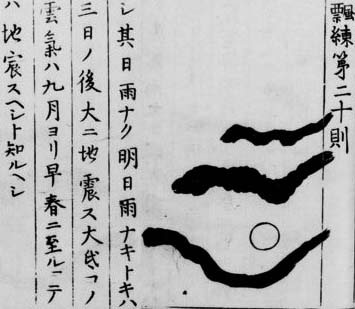 飄練第二十則
シ其日雨ナク明日雨ナキトキハ
三日ノ後大ニ地震ス大氐コノ
雲氣ハ九月ヨリ早春ニ至ルマテ
ハ地震スヘシト知ルヘシ